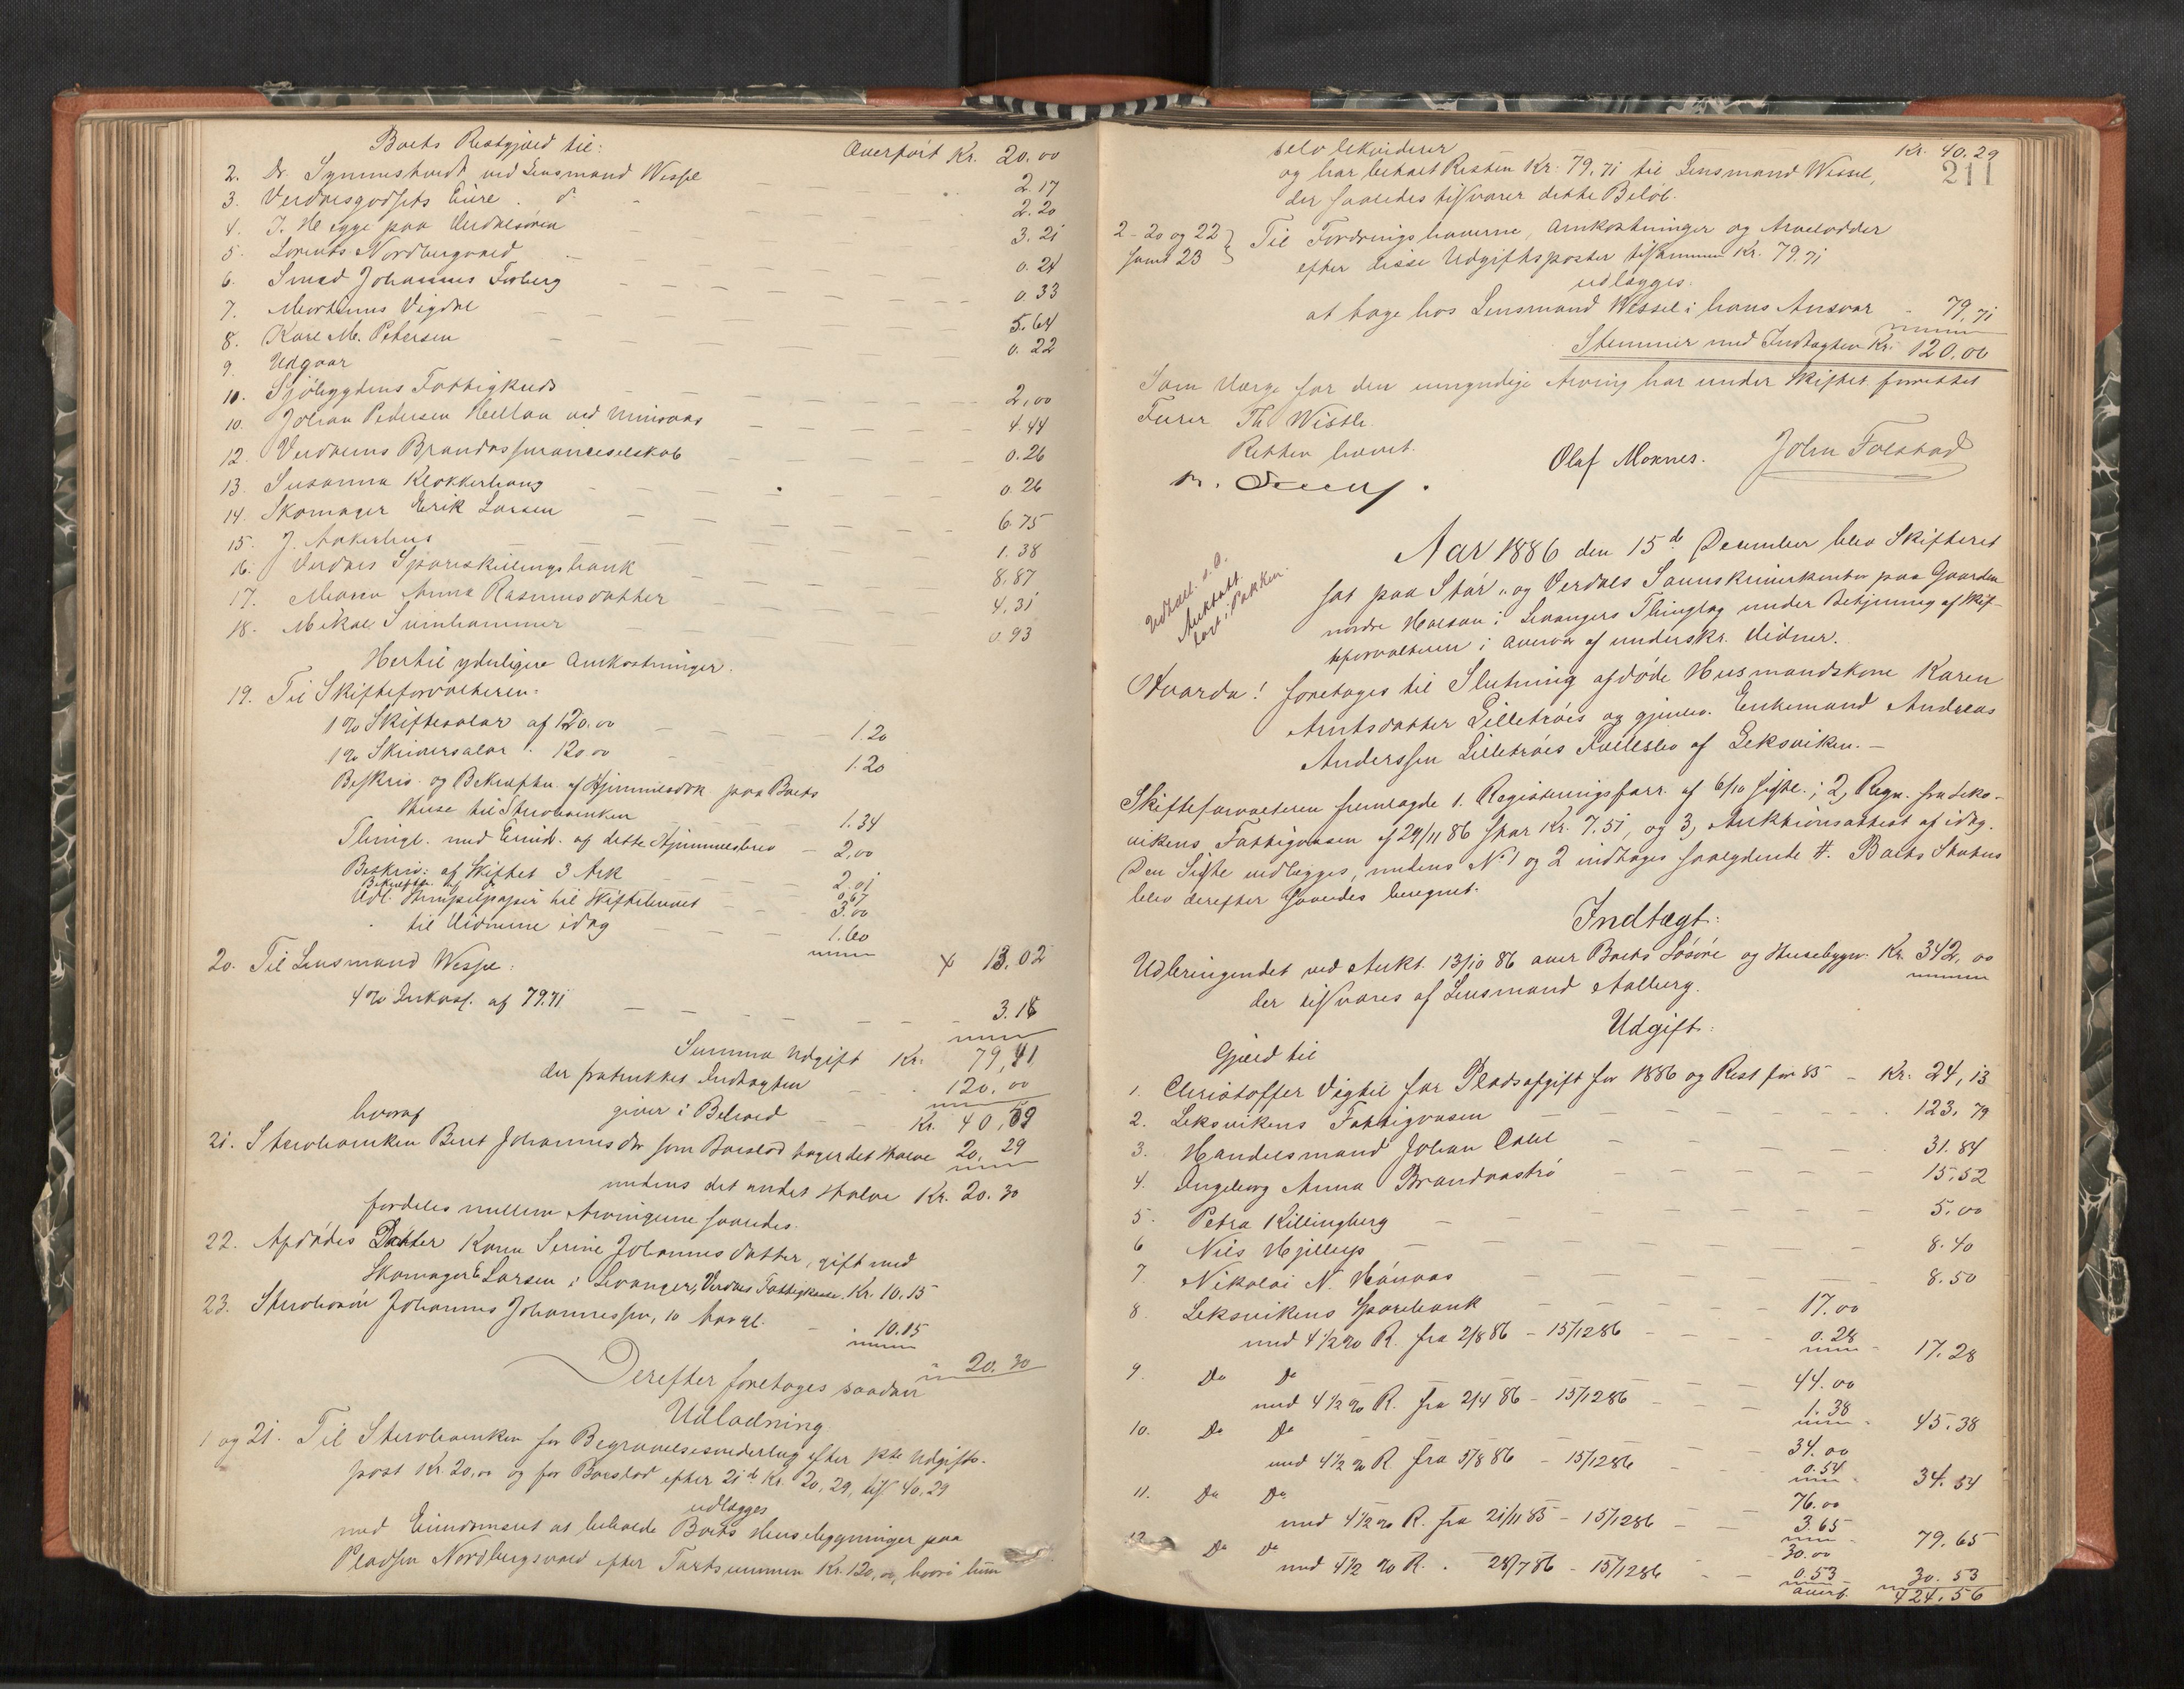 Boets Restgjæld til:
Overført Kr. 20.00
2. Dr. Synnestvedt ved Lensmand Wessel 2.17
3. Verdalsgodsets Eiere d. 2.20
4. J. Hegge paa Verdalsøren 3.21
5. Lorents Nordbergvald 0.24
6. Smed Johannes Forberg 0.33
7. Morthinus Vigdal 5.64
8. Karl M. Petersen 0.22
9. Udgaar
10. Sjøbygdens Fattigkreds 2,00
10. Johan Pedersen Hellan ved 4.44
12. Verdalens Brandassuranceselskab 0.26
13. Susanna Klokkerhaug 0.26
14. Skomager Erik Larsen 6.75
15. J. Aakerhus 1.38
16. Verdals Spareskillingsbank 8,87
17. Maren Anna Rasmusdatter 4,31
18. Mikal Svinhammer 0.93
Hertil yderligere Omkostninger.
19. Til Skifteforvalteren:
1% Skiftesalær af 120.00 1.20
1% Skriversalær " 120.00 1.20
Beskriv. og Bekræften. af Hjemmelsdok. paa Boets
Huse til Stervboenken 1.34
Thingl. med Erind. af dette Hjemmelsbrev 2,00
Beskriv: af Skiftet 3 Ark 2.01
Bekræften af do 0,67
Udl. Stempelpapir til Skiftebrevet 3.00
til Vidnerne idag 1.60
13.02
20. Til Lensmand Wessel:
4% Inkass. af 79.71 3.18
Summa Udgift Kr. 79,71
der fratrukket Indtægten 120.00
giver i Behold Kr. 40,59
hvoraf
21. Stervboenken Beret Johannesdtr som Boeslod tager det Halve 20.29
medens det andet Halve Kr. 20.30
fordeles mellem Arvingerne saaledes.
22. Afdødes Datter Karen Serine Johannesdatter, gift med
Skomager E. Larsen i Levanger, Verdals Fattigkasse. Kr. 10.15
23. Stervbosøn Johannes Johannessen, 10 Aar gl. 10.15
20.30
Derefter foretages saadan
Udlodning
1 og 21. Til Stervboenken for Begravelsesvederlag efter 1ste Udgifts-
post Kr. 20,00 og for Boeslod efter 21de Kr. 20,29, tils. 40,29
udlægges
med Eiendomsret at beholde Boets Husebygninger paa
Pladsen Nordbergsvald efter Taxtsummen Kr. 120,00, hvori hun
211
selv likviderer Kr. 40.29
og har betalt Resten Kr. 79,71 til Lensmand Wessel,
der saaledes tilsvarer dette Beløb.
2-20 og 22 Til Fordringshaverne, Omkostninger og Arvelodder
samt 23 efter disse Udgiftsposter tilsammen Kr. 79.71
udlægges
at tage hos Lensmand Wessel i hans Ansvar 79,71
Stemmer med Indtægten Kr. 120.00
Som Værge for den umyndige Arving har under Skiftet forrettet
Furer Th. Wistb.
Retten hævet.
Olaf Moknes. John Folstad
Udskrevet. s. d.
Auktatt.
lagt i Pakken.
Aar 1886 den 15de December blev Skifteret
sat paa Stør- og Verdals Sorenskriverkontor paa Gaarden
nordre Halsan i Levangers Thinglag under Betjening af Skif-
teforvalteren i Overvær af underskr. Vidner.
Hvorda! foretoges til Slutning afdøde Husmandskone Karen
Arntsdatter Lilletrøes og gjenlev. Enkemand Andreas
Anderssen Lilletrøes Fællesbo af Leksviken.—
Skifteforvalteren fremlagde 1. Registeringsforr. af 6/10 sidstl.; 2, Regn. fra Leks-
vikens Fattigvæsen af 29/11 86 stor Kr. 7.51, og 3, Auktionsattest af idag.
Den Sidste vedlægges, medens No 1 og 2 indtages saalydende #. Boets Status
blev derefter saaledes beregnet.
Indtægt:
Udbringendet ved Aukt. 13/10 86 over Boets Løsøre og Husebygn. Kr. 342,00
der tilsvares af Lensmand Aalberg.
Udgift:
Gjæld til
1. Christoffer Vigtil for Pladsafgift for 1886 og Rest for 85 Kr. 24,13
2. Leksvikens Fattigvæsen 123.79
3. Handelsmand Johan Dahl 31.84
4. Ingeborg Anna Brandvastrø 15,52
5. Petra Killingberg 5.00
6 Nils Hjellup 8.40
7. Nikolai N. Hånaas 8.50
8. Leksvikens Sparebank 17.00
med 4 1/2 % R. fra 2/8 86 - 15/12 86 0.28 17.28
9. Do Do 44.00
med 4 1/2 % R. fra 2/4 86 - 15/12 86 1.38 45.38
10. Do Do 34.00
med 4 1/2 % R fra 5/8 86 - 15/12 86 0.54 34.54
11. Do Do 76.00
med 4 1/2 % R. fra 21/11 85 - 15/12 86 3.65 79.65
12. Do Do 30.00
med 4 1/2 % R. " 28/7 86 - 15/12 86 0.53 30.53
overf. 424.56